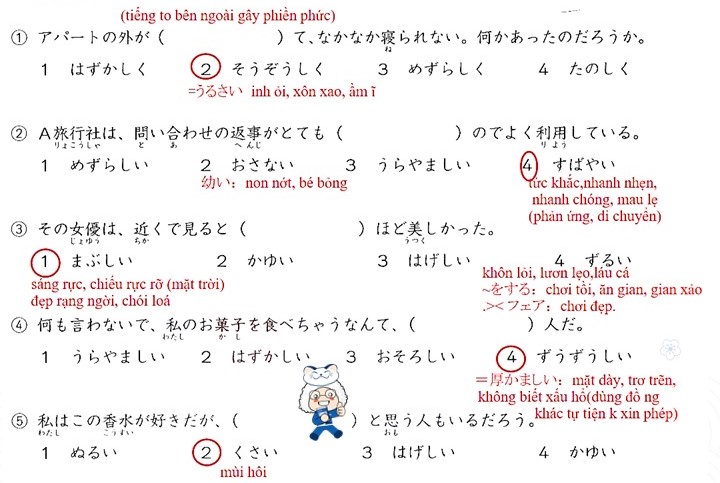 (tiếng to bên ngoài gây phiền phức)
① アパートの外が（　　　　　　）て、なかなか寝られない。何かあったのだろうか。
ね
1 はずかしく 2 そうぞうしく 3 めずらしく 4 たのしく
=うるさい inh ỏi, xôn xao, ầm ĩ
② A旅行社は、問い合わせの返事がとても（　　　　　　）のでよく利用している。
りょこうしゃ と あ へんじ りよう
1 めずらしい 2 おさない 3 うらやましい 4 すばやい
幼い：non nớt, bé bỏng
tức khắc,nhanh nhẹn,
nhanh chóng, mau lẹ
(phản ứng, di chuyển)
③ その女優は、近くで見ると（　　　　　　）ほど美しかった。
じょゆう ちか うつく
1 まぶしい 2 かゆい 3 はげしい 4 ずるい
sáng rực, chiếu rực rỡ (mặt trời)
đẹp rạng ngời, chói loá
khôn lỏi, lươn lẹo,láu cá
~をする：chơi tồi, ăn gian, gian xảo
.><フェア：chơi đẹp.
④ 何も言わないで、私のお菓子を食べちゃうなんて、（　　　　　　）人だ。
わたし か し
1 うらやましい 2 はずかしい 3 おそろしい 4 ずうずうしい
＝厚かましい：mặt dày, trơ trẽn,
không biết xấu hổ(dùng đồ ng
khác tự tiện k xin phép)
⑤ 私はこの香水が好きだが、（　　　　　　）と思う人もいるだろう。
わたし こうすい おも
1 ぬるい 2 くさい 3 はげしい 4 かゆい
mùi hôi